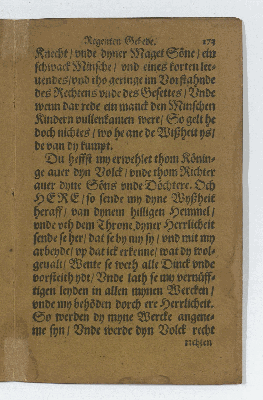 Regenten Gebede. 174
Knecht / vnde dyner Maget Söne / ein
schwack Minsche / vnd eines korten le-
uendes / vnd tho geringe im Vorstahnde
des Rechtens vnde des Gesettes / Vnde
wenn dar rede ein manck den Minschen
Kindern vullenkamen were / So gelt he
doch nichtes / wo he ane de Wißheit ys /
de van dy kumpt.
Du heffst my erwehlet thom Könin-
ge auer dyn Volck / vnde thom Richter
auer dyne Söns vnde Döchtere. Och
HERE / so sende my dyne Wyßheit
heraff / van dynem hilligen Hemmel /
vnde vth dem Throne dyner Herrlicheit
sende se her / dat se by my sy / vnd mit my
arbeyde / vp dat ick erkenne / wat dy wol-
geualt / Wente se weth alle Dinck vnde
vorsteith ydt / Vnde lath se my vernüff-
tigen leyden in allen mynen Wercken /
vnde my behöden dorch ere Herrlicheit.
So werden dy myne Wercke angene-
me syn / Vnde werde dyn Volck recht
richten